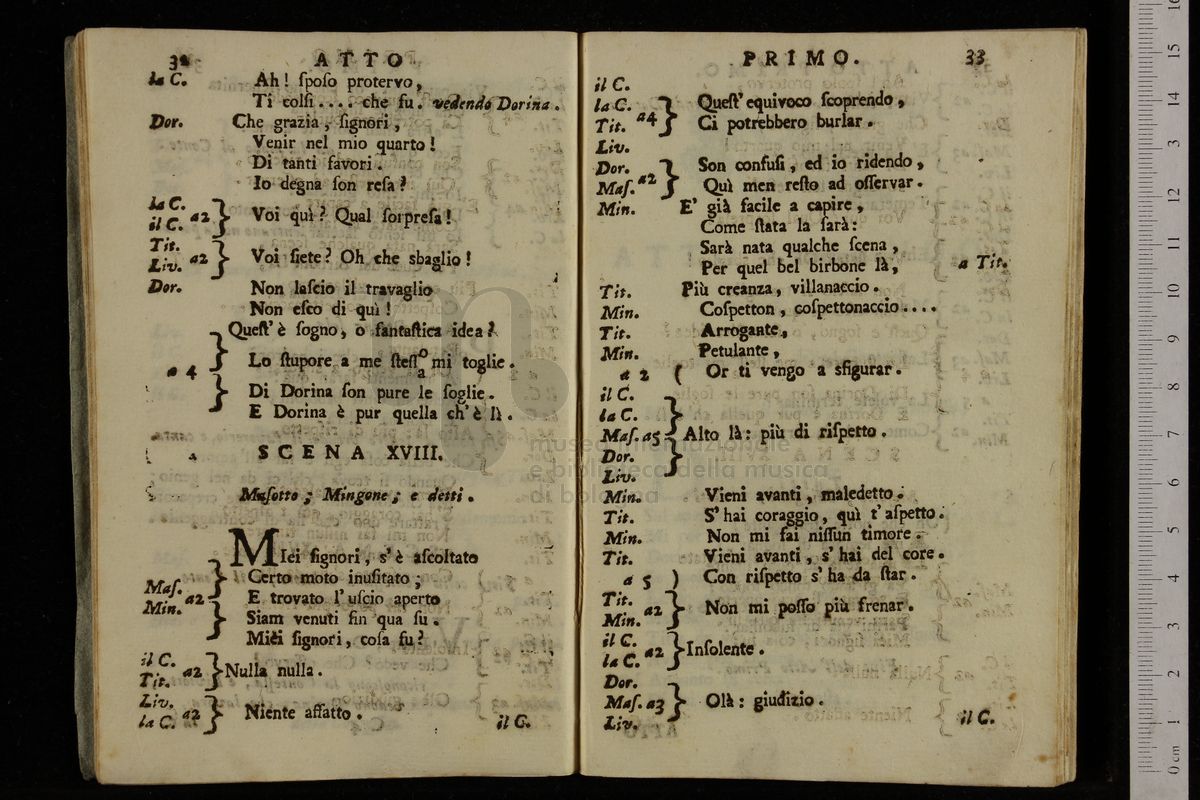 32 ATTO
la C. Ah! ſpoſo protervo,
Ti colſi.... che fu. vedendo Dorina.
Dor. Che grazia, ſignori,
Venir nel mio quarto!
Di tanti favori.
Io degna ſon reſa?
la C.
il C. a2 } Voi quì? Qual ſorpreſa!
Tit.
Liv. a2 } Voi ſiete? Oh che sbaglio!
Dor. Non laſcio il travaglio
Non eſco di quì!
Queſt' è ſogno, o fantaſtica idea?
Lo ſtupore a me ſteſſo/a mi toglie.
a 4
Di Dorina ſon pure le ſoglie.
E Dorina è pur quella ch'è lì.
SCENA XVIII.
Maſotto; Mingone; e detti.
MIei ſignori, s'è aſcoltato
Certo moto inuſitato;
Maſ.
Min. a2 } E trovato l'uſcio aperto
Siam venuti fin qua ſu.
Miei ſignori, coſa fu?
il C.
Tit. a2 } Nulla nulla.
Liv.
la C. a2 } Niente affatto.
il C.
PRIMO. 33
il C.
la C. Queſt' equivoco ſcoprendo,
Tit. a4 } Ci potrebbero burlar.
Liv.
Dor. Son confuſi, ed io ridendo,
Maſ. a2 } Quì men reſto ad oſſervar.
Min. E' già facile a capire,
Come ſtata la ſarà:
Sarà nata qualche ſcena,
Per quel bel birbone là, a Tit.
Tit. Più creanza, villanaccio.
Min. Coſpetton, coſpettonaccio....
Tit. Arrogante,
Min. Petulante,
a 2 ( Or ti vengo a sfigurar.
il C.
la C.
Maſ. a5 } Alto là: più di riſpetto.
Dor.
Liv.
Min. Vieni avanti, maledetto.
Tit. S' hai coraggio, quì t' aſpetto.
Min. Non mi fai niſſun timore.
Tit. Vieni avanti, s' hai del core.
a 5 ) Con riſpetto s' ha da ſtar.
Tit.
Min. a2 } Non mi poſſo più frenar.
il C.
la C. a2 } Inſolente.
Dor.
Maſ. a3 } Olà: giudizio.
Liv.
il C.
museo internazionale
e biblioteca della musica
di bologna
0 cm 1 2 3 4 5 6 7 8 9 10 11 12 13 14 15 16